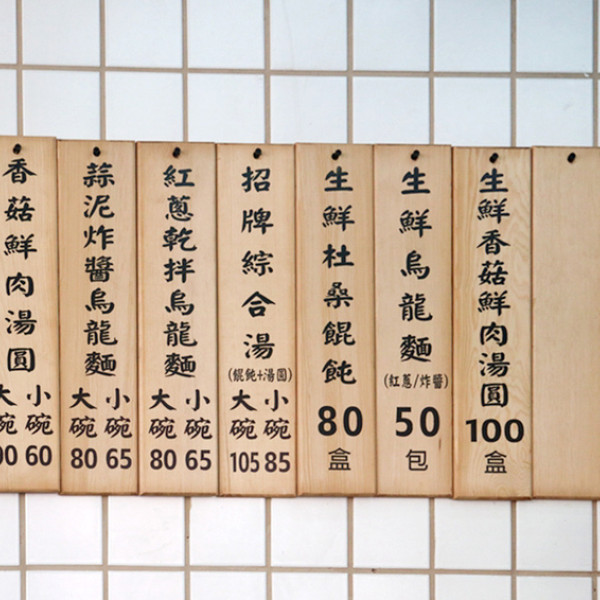 香菇鮮肉湯圓
大碗 小碗
60
蒜泥炸醬烏龍麵
大碗 小碗
80 65
紅蔥乾拌烏龍麵
大碗 小碗
80 65
招牌綜合湯
(餛飩+湯圓)
大碗 小碗
105 85
生鮮杜桑餛飩
80
盒
生鮮烏龍麵
(紅蔥/炸醬)
50
包
生鮮香菇鮮肉湯圓
100
盒